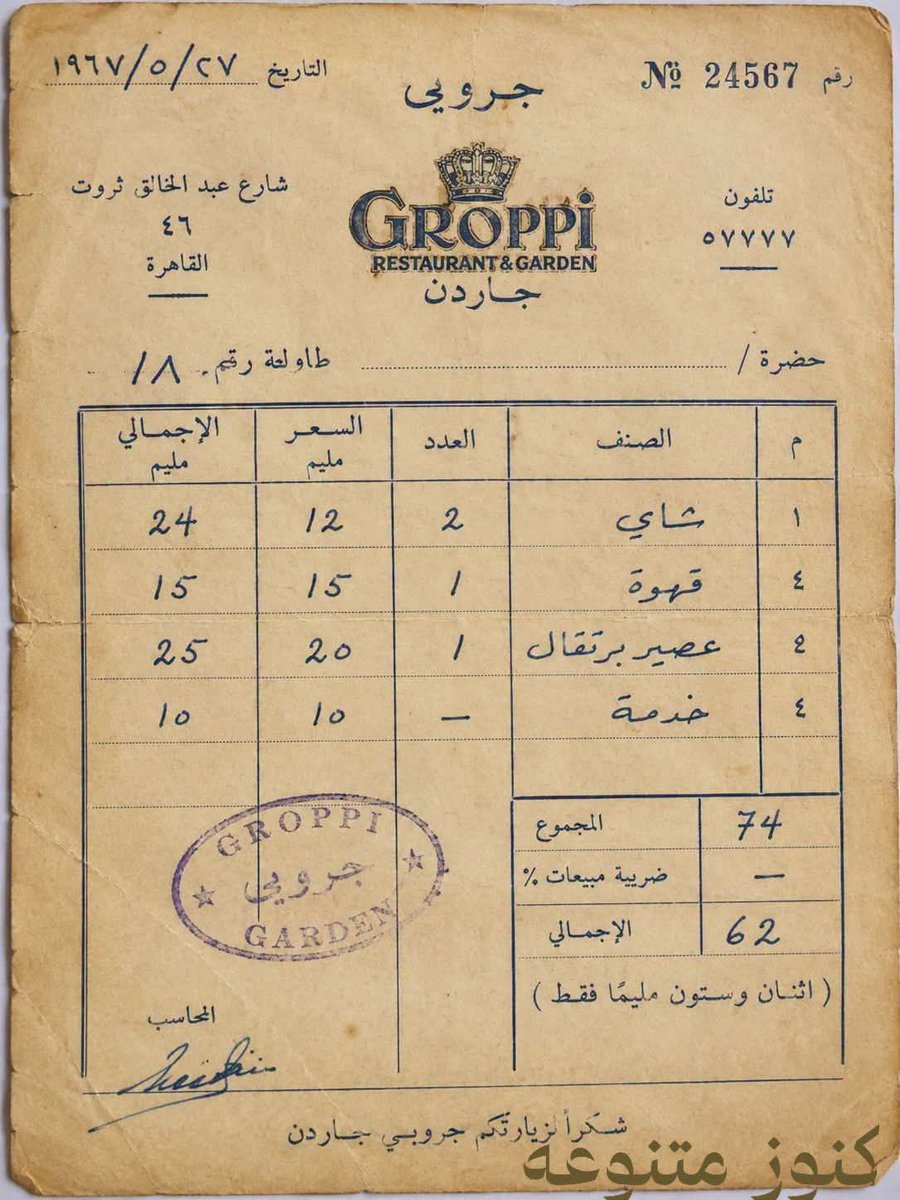 رقم № 24567
التاريخ ١٩٦٧/٥/٢٧
جرويي
GROPPi
RESTAURANT & GARDEN
جاردن
تلفون
٥٧٧٧٧
شارع عبد الخالق ثروت
٤٦
القاهرة
حضرة /
طاولة رقم. ١٨
م الصنف العدد السعر مليم الإجمالي مليم
١ شاي 2 12 24
٤ قهوة 1 15 15
٤ عصير برتقال 1 20 25
٤ خدمة – 10 10
المجموع 74
ضريبة مبيعات % –
الإجمالي 62
( اثنان وستون مليمًا فقط )
GROPPI
جرويي
GARDEN
المحاسب
شكراً لزيارتكم جروبي جاردن
كنوز متنوعه